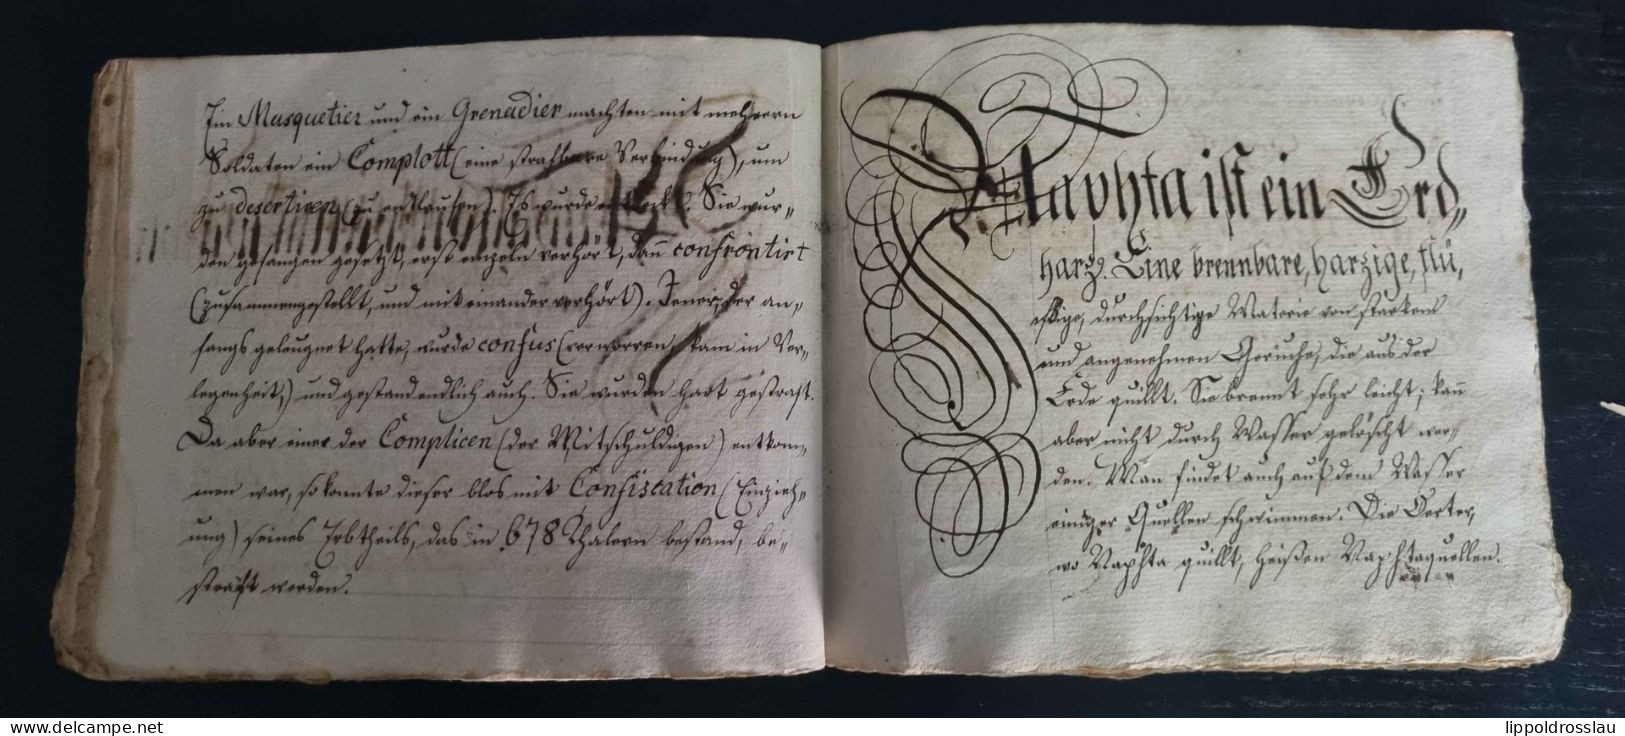 Ein Musquetier und ein Grenadier machten mit mehrern
Soldaten ein Complott (eine strafbare Verbindung), um
zu desertiren (zu entlaufen). Es wurde entdeckt. Sie wur„
den gefangen gesetzt, erst einzeln verhört, dañ confrontirt
(zusammengestellt, und mit einander verhört). Jener, der an„
fangs geleugnet hatte, wurde confus (verworren, kam in Ver„
legenheit,) und gestand endlich auch. Sie wurden hart gestraft.
Da aber einer der Complicen (der Mitschuldigen) entkom„
men war, so konnte dieser blos mit Confiscation (Einzieh„
ung) seines Erbtheils, das in 678 Thalern bestand, be„
straft werden.
Naphta ist ein Erd„
harz. Eine brennbare, harzige, flü„
ßige, durchsichtige Materie von starkem
und angenehmen Geruche, die aus der
Erde quillt. Sie brennt sehr leicht; kañ
aber nicht durch Wasser gelöscht wer„
den. Man findet auch auf dem Wasser
einiger Quellen schwimmen. Die Oerter,
wo Naphta quillt, heißen Naphtaquellen.
lippoldrosslau